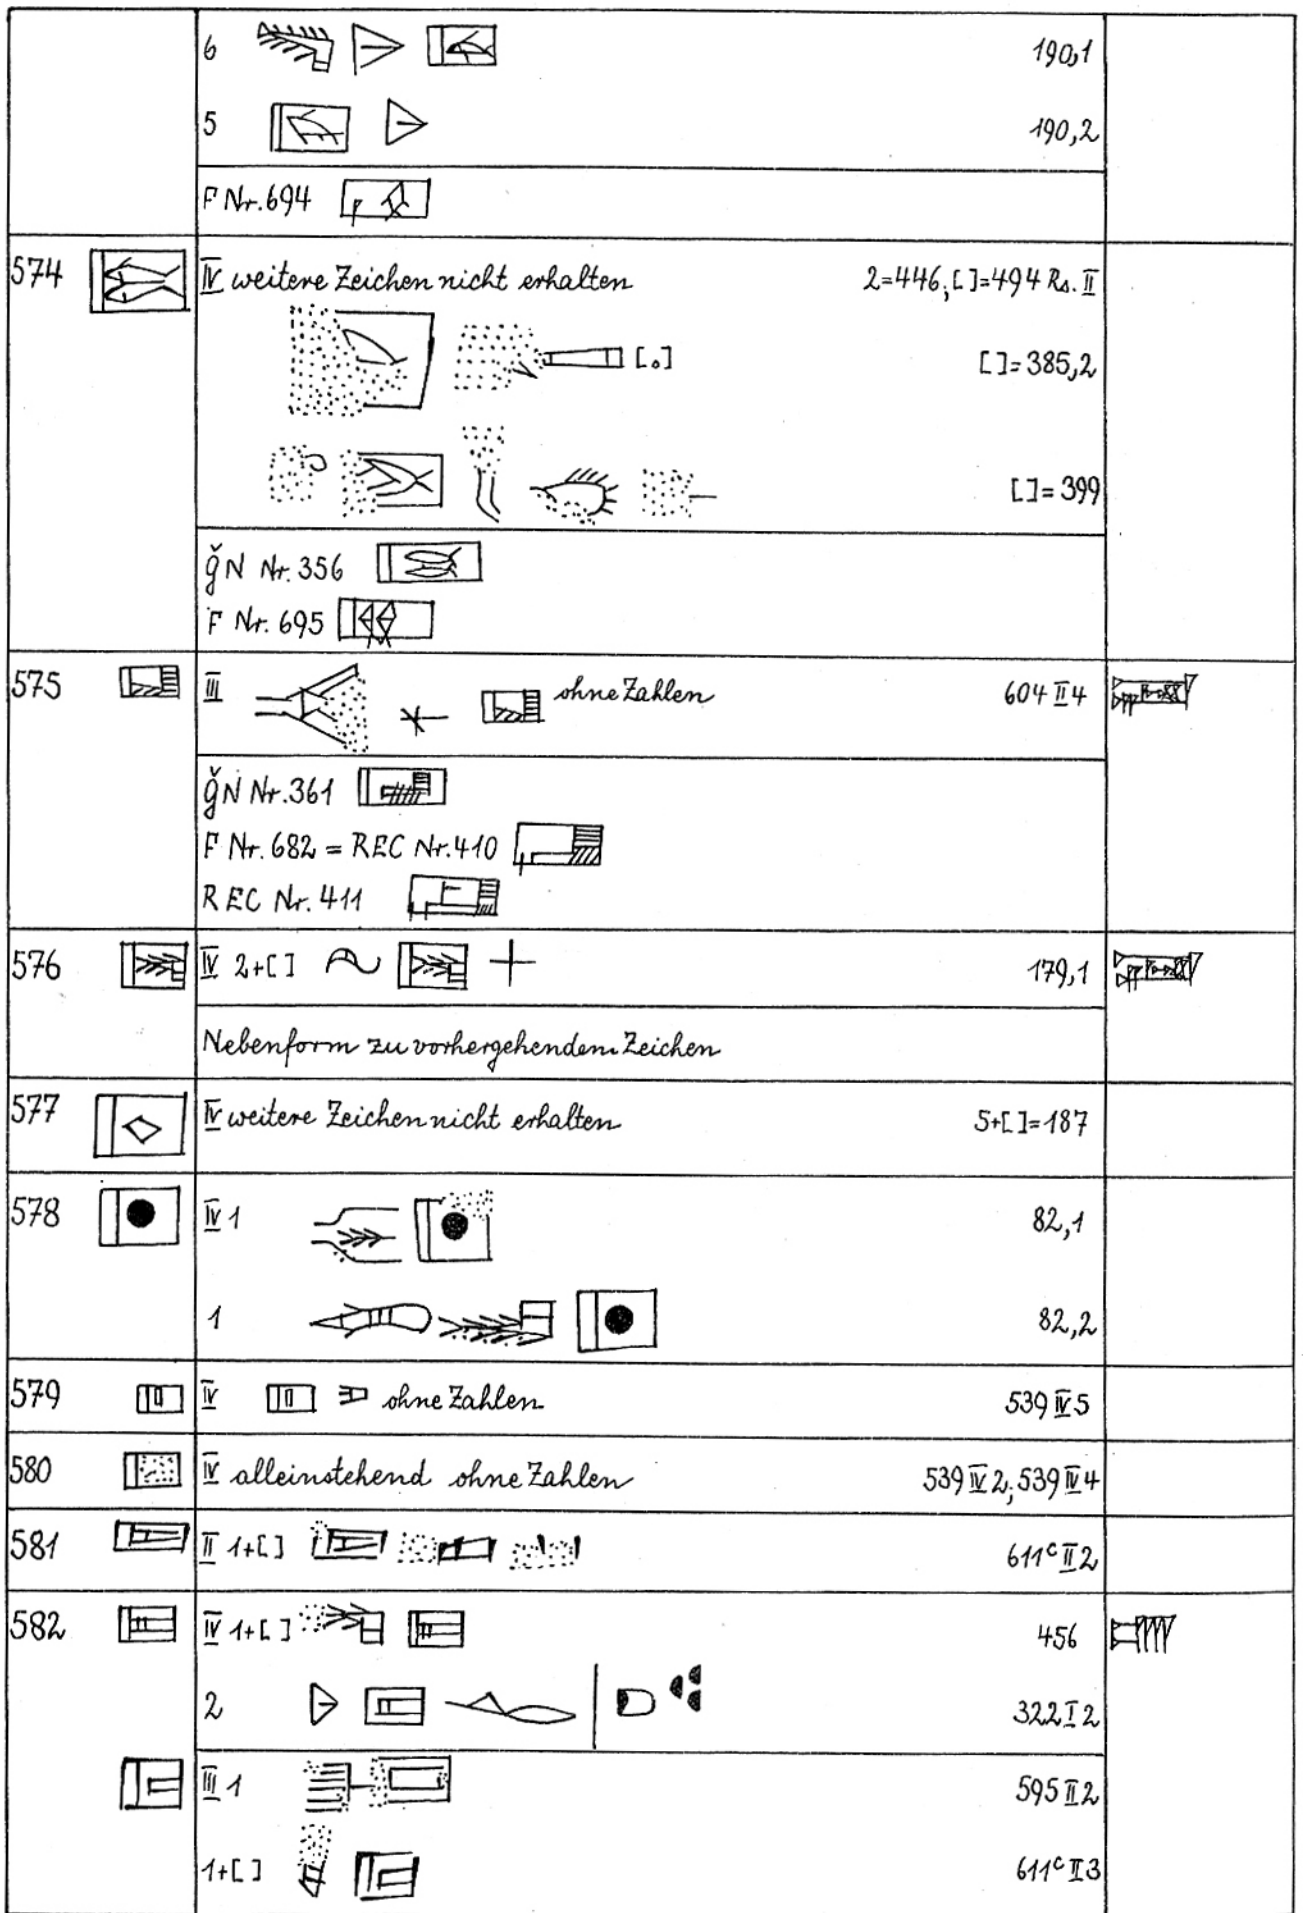 6 190,1
5 190,2
F Nr. 694
574 IV weitere Zeichen nicht erhalten 2=446; [ ]=494 Rs. II
[o] [ ]=385,2
[ ]=399
ğN Nr. 356
F Nr. 695
575 III ohne Zahlen 604 II 4
ğN Nr. 361
F Nr. 682 = REC Nr. 410
REC Nr. 411
576 IV 2+[ ] 179,1
Nebenform zu vorhergehendem Zeichen
577 IV weitere Zeichen nicht erhalten 5+[ ]=187
578 IV 1 82,1
1 82,2
579 IV ohne Zahlen 539 IV 5
580 IV alleinstehend ohne Zahlen 539 IV 2; 539 IV 4
581 II 1+[ ] 611c II 2
582 IV 1+[ ] 456
2 322 I 2
III 1 595 II 2
1+[ ] 611c II 3